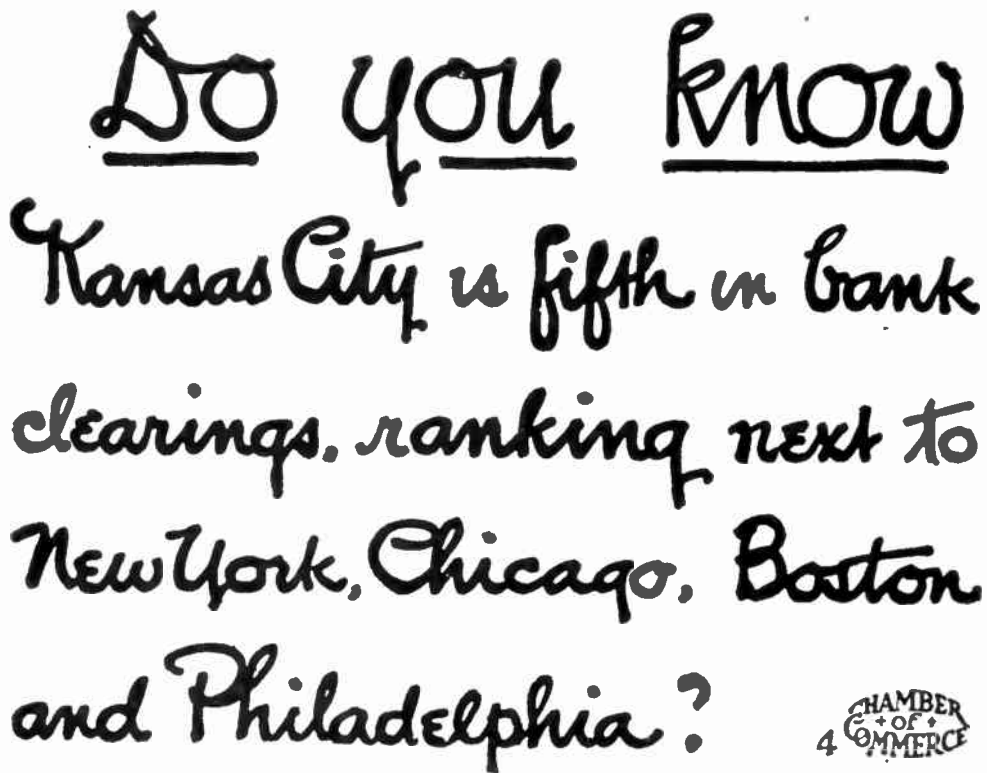 Do you know
Kansas City is fifth in bank
clearings, ranking next to
New York, Chicago, Boston
and Philadelphia?
4 CHAMBER
OF
COMMERCE